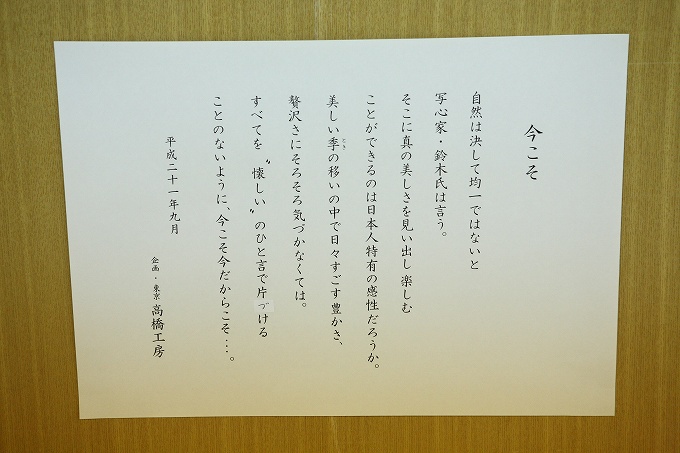 今こそ
自然は決して均一ではないと
写心家・鈴木氏は言う。
そこに真の美しさを見い出し楽しむ
ことができるのは日本人特有の感性だろうか。
美しい季の移いの中で日々すごす豊かさ、
とき
贅沢さにそろそろ気づかなくては。
すべてを〝懐しい〟のひと言で片づける
ことのないように、今こそ今だからこそ・・・。
平成二十一年九月
企画・東京 高橋工房